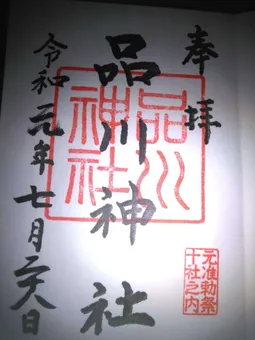 奉拝
品川神社
品川
神社
元准勅祭
十社之内
令和元年七月二六日